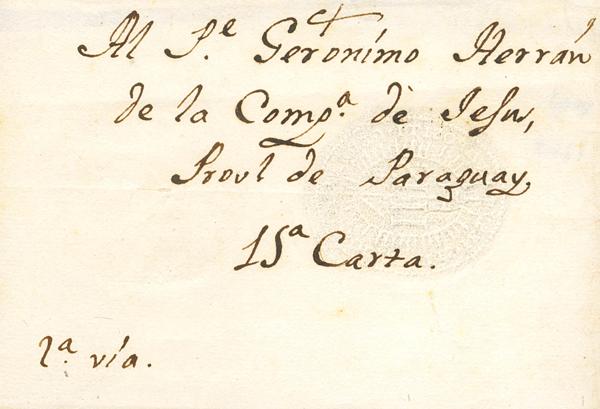 Al P.e Gerónímo Herrán
de la Comp.a dè Jesus,
Provl de Paraguay,
15a Carta.
1a. vía.